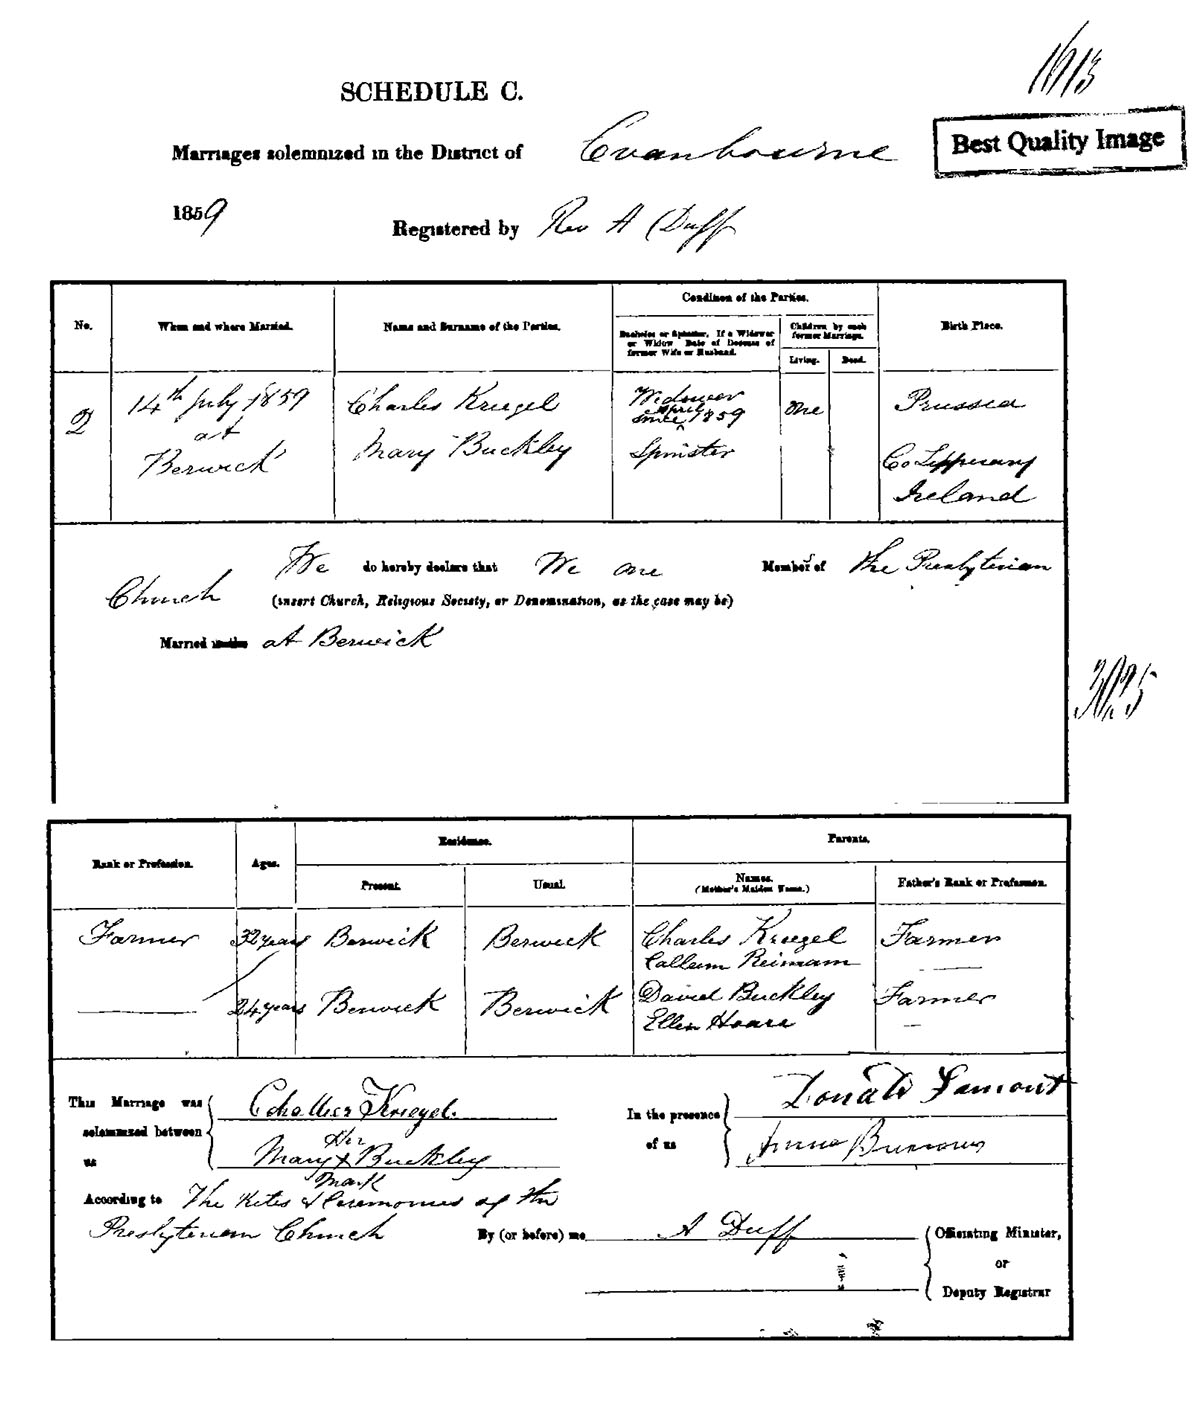 SCHEDULE C.
Marriages solemnized in the District of Cranbourne
Best Quality Image
1859 Registered by Rev A Duff
No.
When and where Married.
Name and Surname of the Parties.
Condition of the Parties.
Bachelor or Spinster. If a Widower or Widow Date of Decease of former Wife or Husband.
Children by each former Marriage.
Living.
Dead.
Birth Place.
2
14th July 1859
at
Berwick
Charles Kruegel
Mary Buckley
Widower
since April 1859
Spinster
One
Prussia
Co Tipperary
Ireland
We do hereby declare that We are Members of the Presbyterian
Church (insert Church, Religious Society, or Denomination, as the case may be)
Married at Berwick
3025
Rank or Profession.
Ages.
Residence.
Present.
Usual.
Parents.
Names.
(Mother's Maiden Name.)
Father's Rank or Profession.
Farmer
32 years
Berwick
Berwick
Charles Kruegel
Reimam
Farmer
24 years
Berwick
Berwick
David Buckley
Ellen Hoare
Farmer
This Marriage was
solemnized between
us
Kruegel.
Her
Mary X Buckley
Mark
In the presence
of us
Donald Lamont
Burrows
According to The Rites & Ceremonies of the
Presbyterian Church
By (or before) me A Duff
Officiating Minister,
or
Deputy Registrar